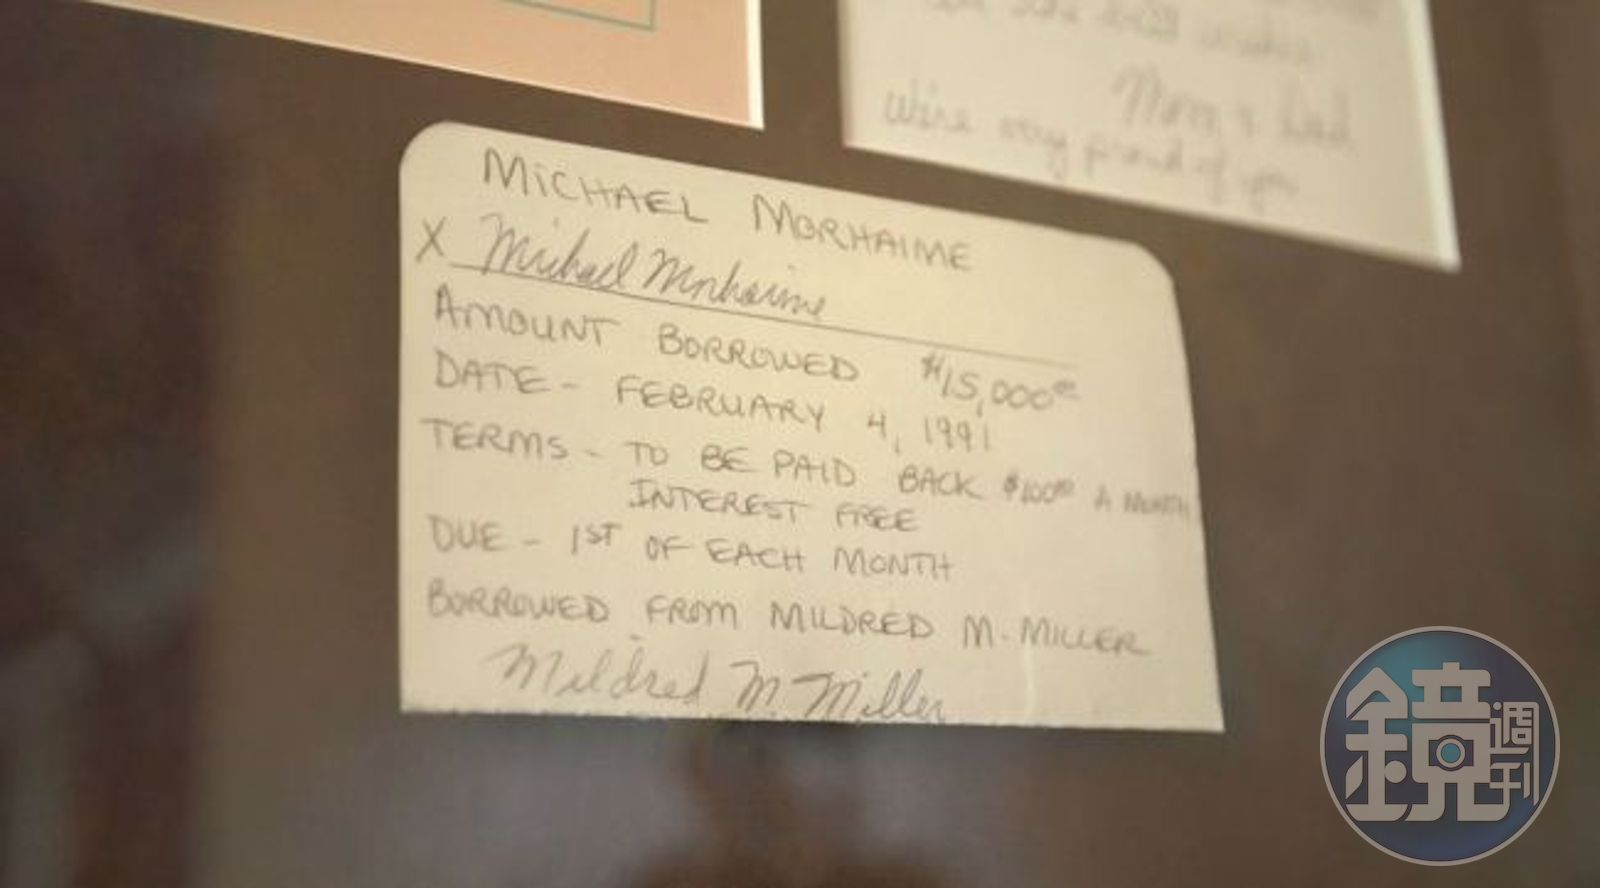 Mom & Dad
We're very proud of you
MICHAEL MORHAIME
X Michael Morhaime
AMOUNT BORROWED $15,000⁰⁰
DATE - FEBRUARY 4, 1991
TERMS - TO BE PAID BACK $100⁰⁰ A MONTH
INTEREST FREE
DUE - 1ST OF EACH MONTH
BORROWED FROM MILDRED M. MILLER
Mildred M. Miller
鏡週刊